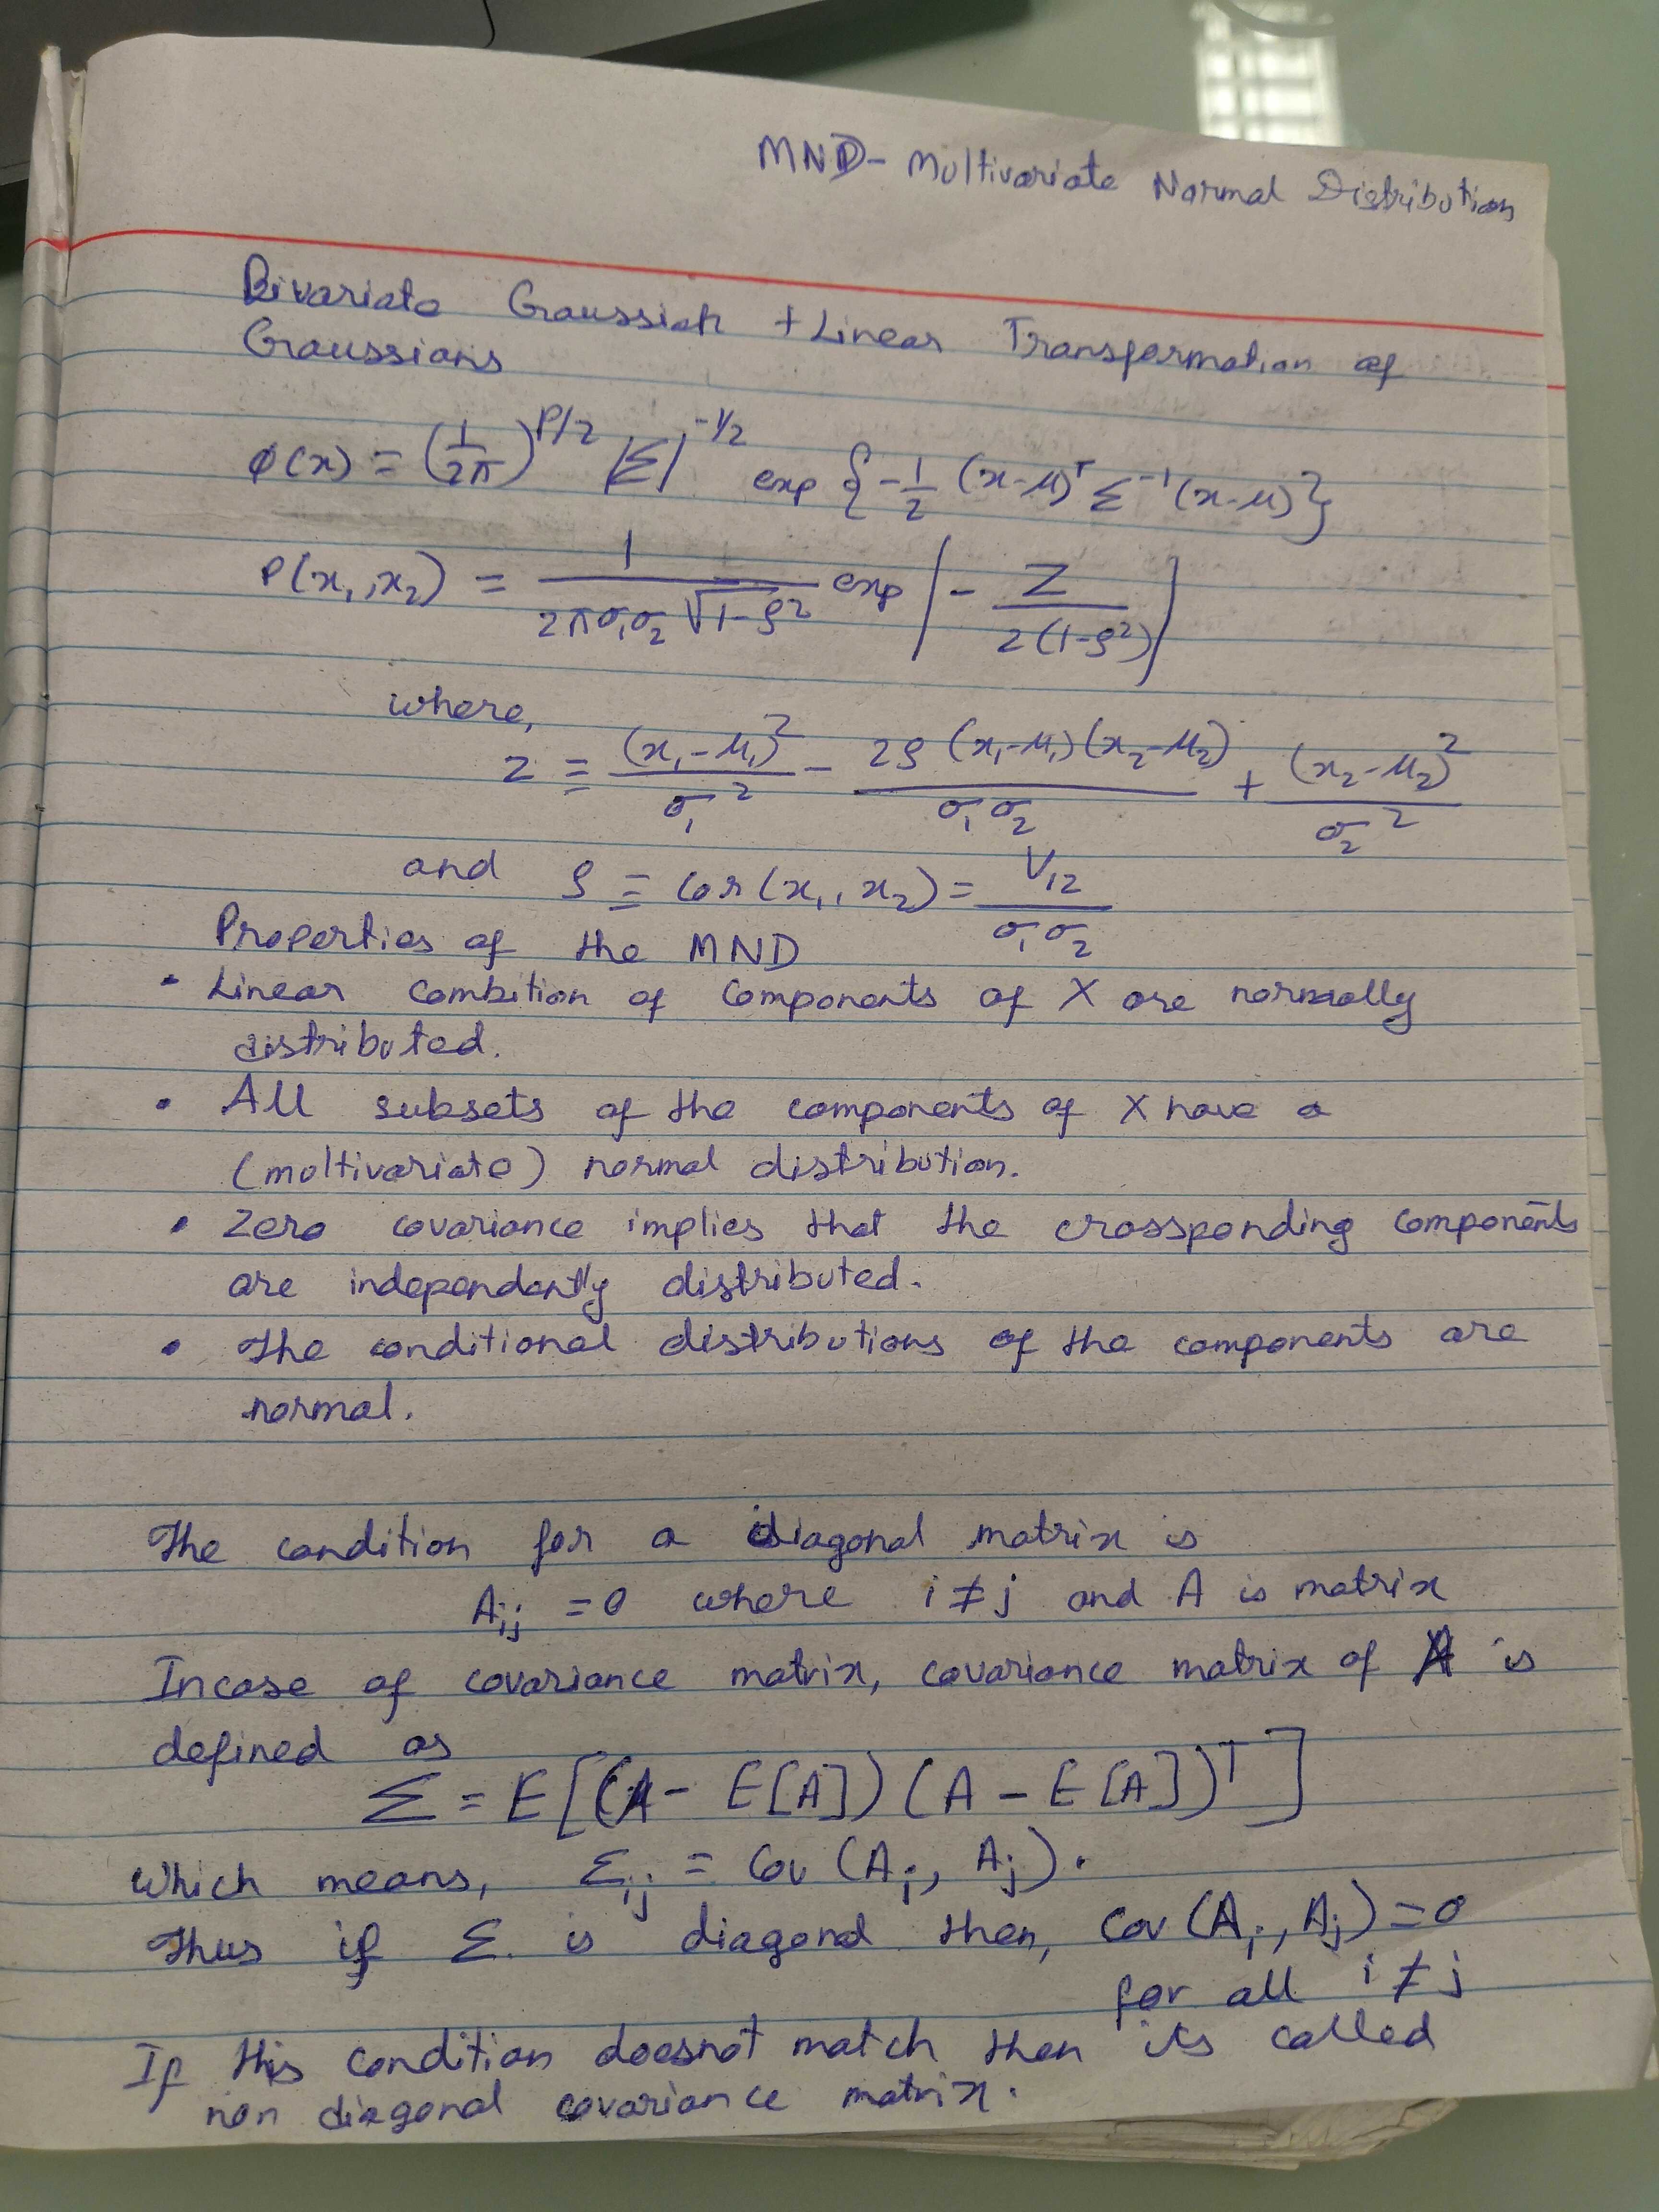 MND- Multivariate Normal Distribution
Bivariate Gaussian + Linear Transformation of
Gaussians
φ(x) = (1/2π)^P/2 |Σ|^-1/2 exp {-1/2 (x-μ)^T Σ^-1 (x-μ)}
P(x₁,x₂) = 1/(2πσ₁σ₂ √1-ρ²) exp [- Z/(2(1-ρ²))]
where,
z ≡ (x₁-μ₁)²/σ₁² - 2ρ(x₁-μ₁)(x₂-μ₂)/σ₁σ₂ + (x₂-μ₂)²/σ₂²
and ρ ≡ cor(x₁, x₂) = V₁₂/σ₁σ₂
Properties of the MND
• Linear combition of components of X are normally
distributed.
• All subsets of the components of X have a
(multivariate) normal distribution.
• Zero covariance implies that the crossponding components
are independently distributed.
• The conditional distributions of the components are
normal.
The condition for a diagonal matrix is
Aij = 0 where i ≠ j and A is matrix
Incase of covariance matrix, covariance matrix of A is
defined as
Σ = E[(A - E[A]) (A - E[A])^T]
Which means, Σij = Cov (Ai, Aj).
Thus if Σ is diagonal then, Cov (Ai, Aj) = 0
for all i ≠ j
If this condition doesnot match then its called
non diagonal covariance matrix.